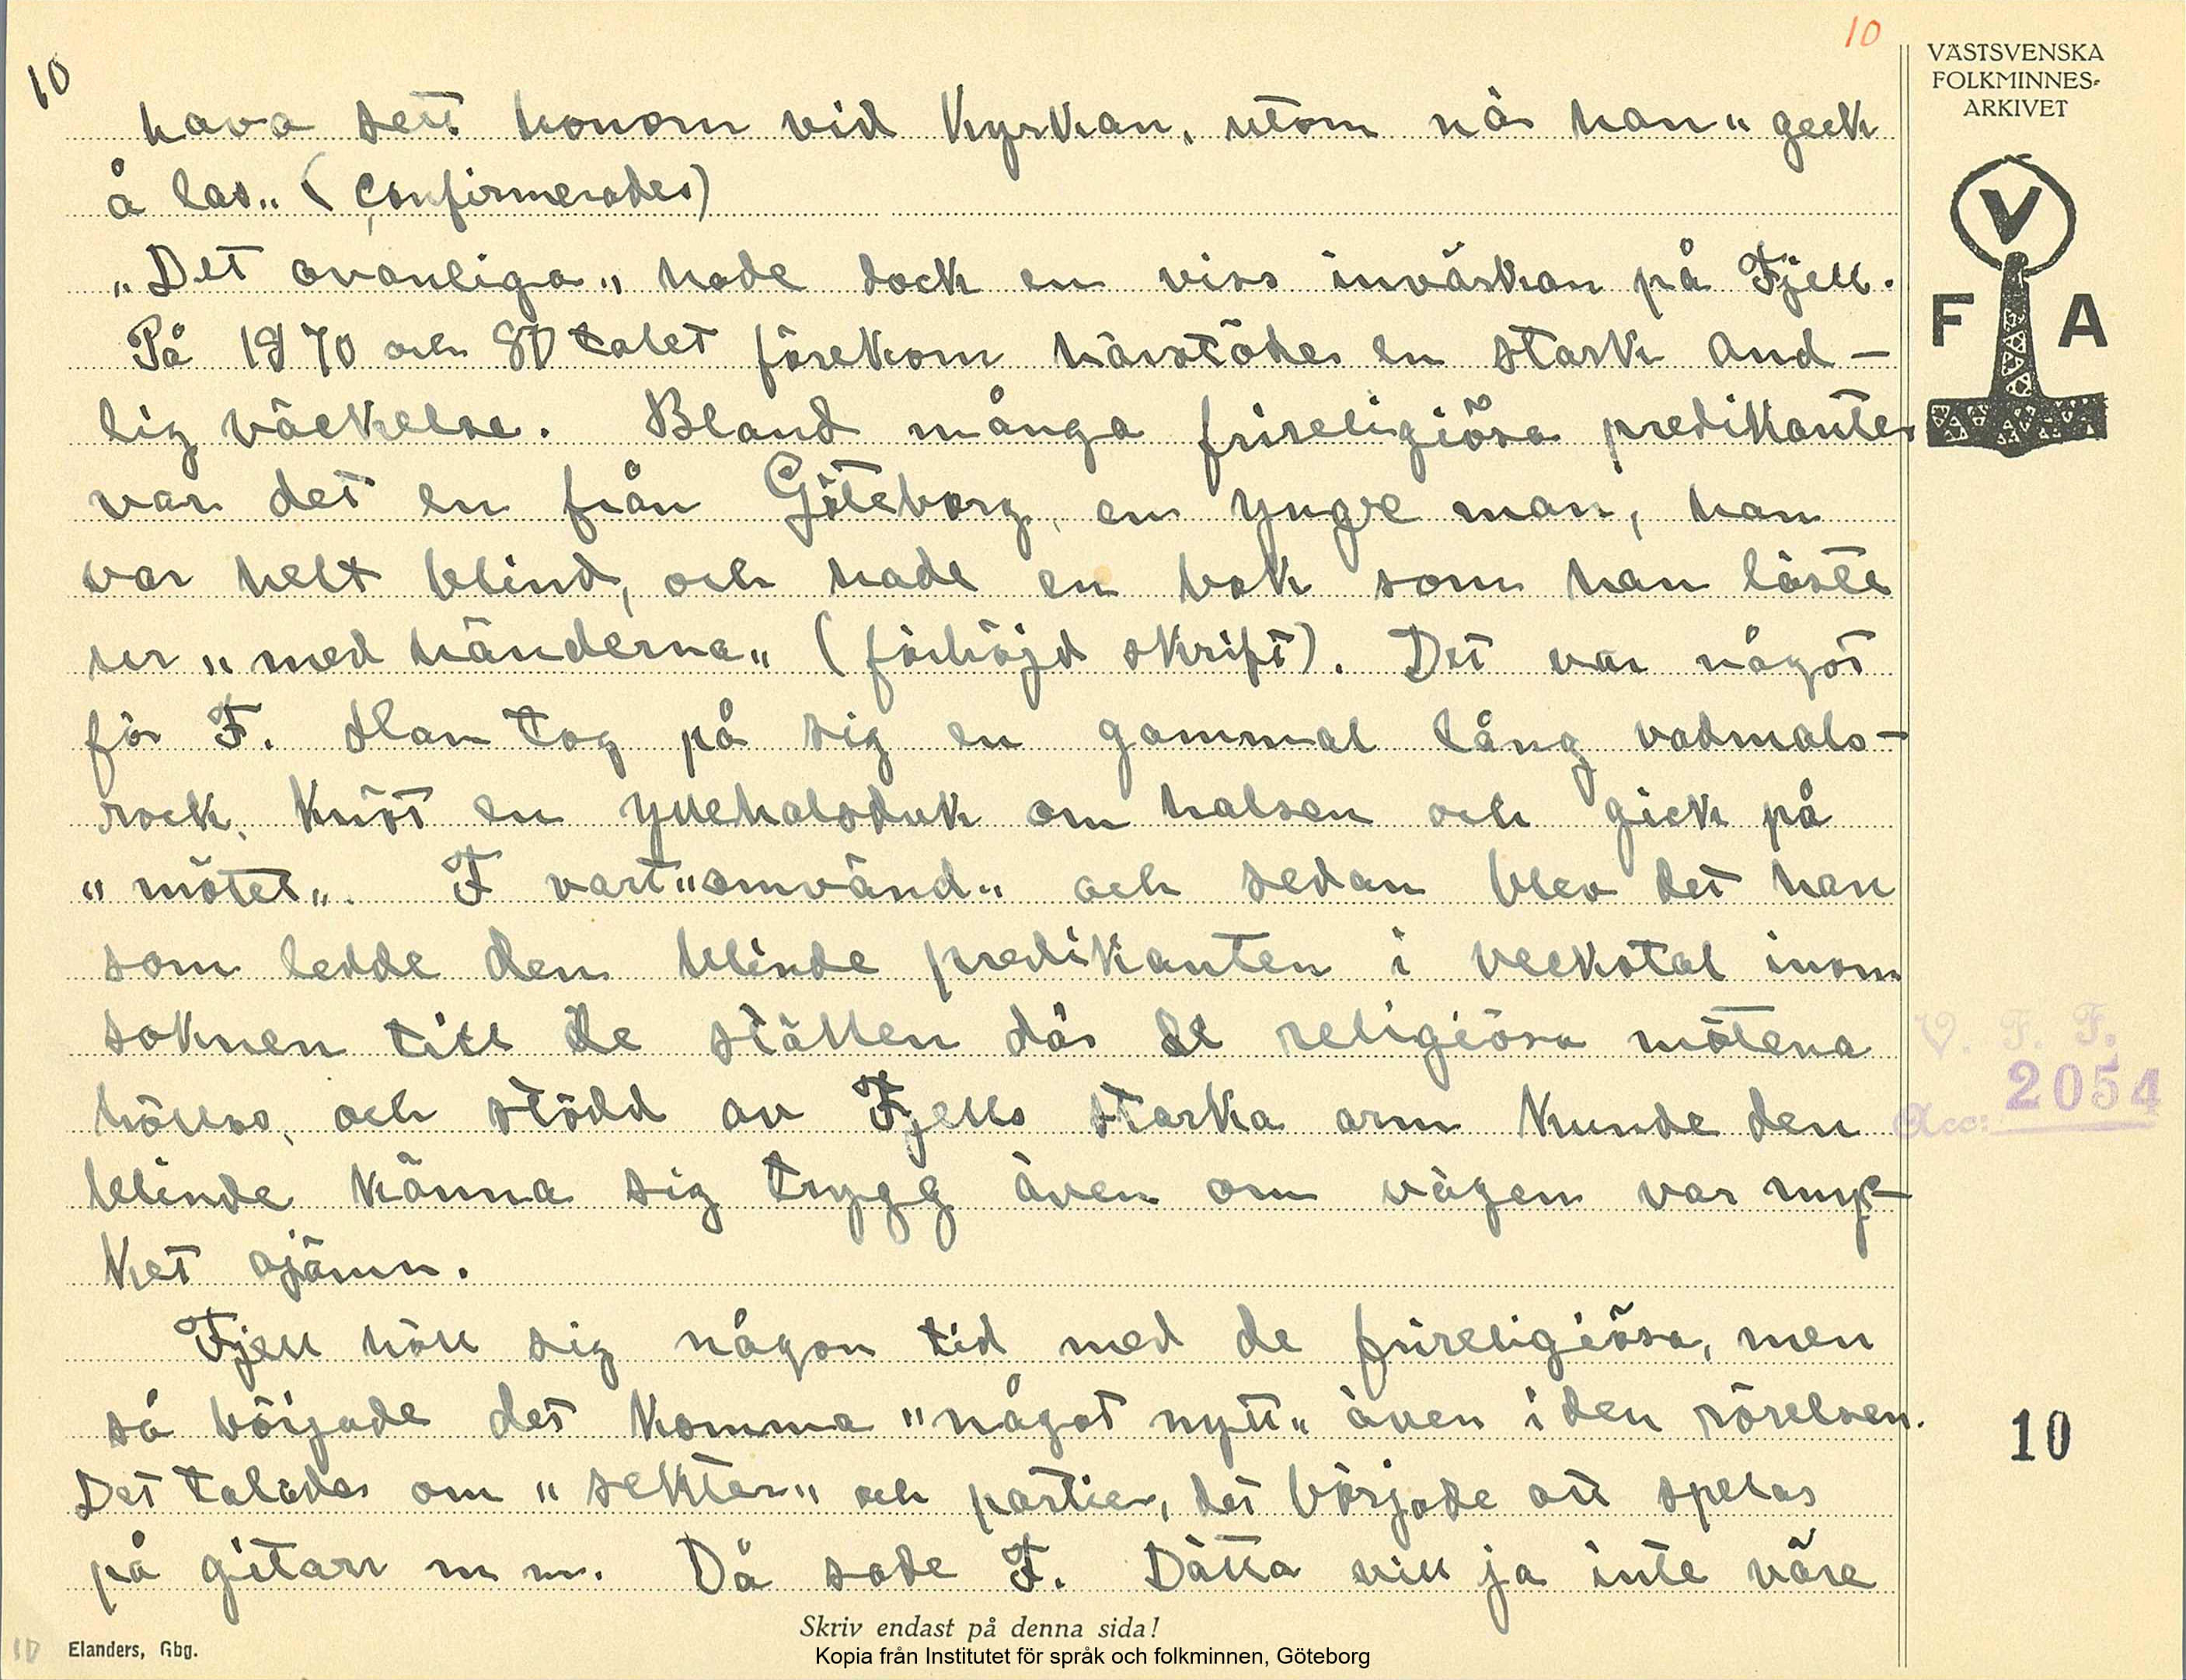 10
10
VÄSTSVENSKA
FOLKMINNES-
ARKIVET
V
F A
hava sett honom vid kyrkan, utom när han „geck
å las„ (Confirmerades)
„Det ovanliga„ hade dock en viss inværkan på Fjell.
På 1870 och 80 talet förekom härstädes en stark and-
lig väckelse. Bland många frireligiösa predikanter
var det en från Göteborg, en yngre man, han
var helt blind, och hade en bok som han läste
ur „med händerna„ (förhöjd skrift). Det var något
för F. Han tog på sig en gammal lång vadmals-
rock, knöt en yllehalsduk om halsen och gick på
„mötet„. F vart „omvänd„ och sedan blev det han
som ledde den blinde predikanten i veckotal inom
soknen till de ställen där de religiösa mötena
hölls, och stödd av Fjells starka arm kunde den
blinde känna sig trygg även om vägen var myc-
ket ojämn.
Fjell höll sig någon tid med de frireligiösa, men
så började det komma "något nytt„ även i den rörelsen.
Det talades om "sekter„ och partier, det började att spelas
på gitarr m m. Då sade F. Dätta vill ja inte väre
V. F. F.
Acc: 2054
10
Skriv endast på denna sida!
10 Elanders, Gbg.
Kopia från Institutet för språk och folkminnen, Göteborg